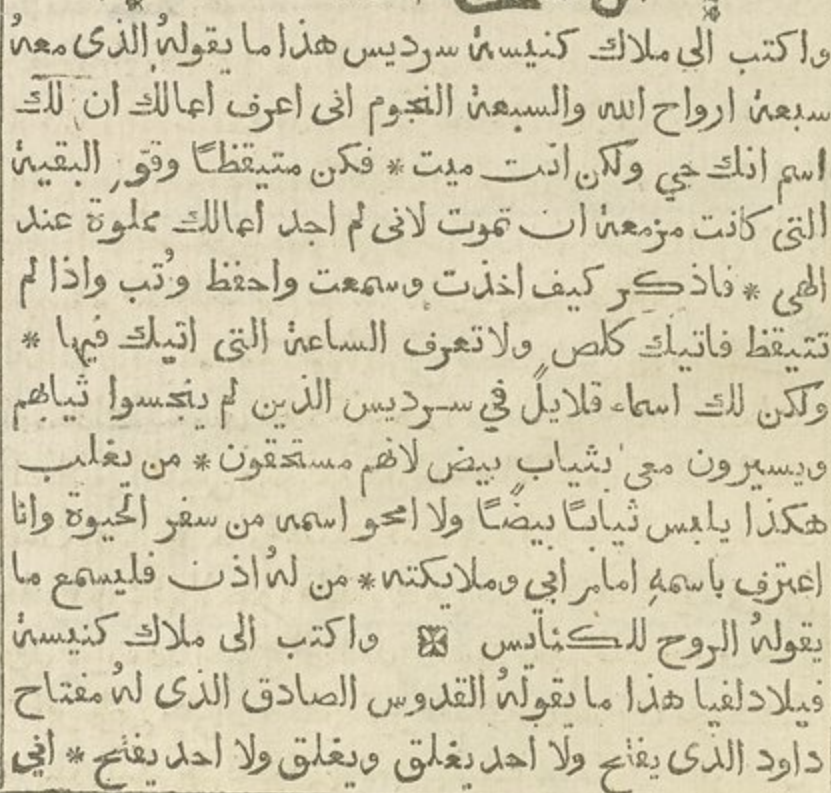 واكتب الي ملاك كنيسة سرديس هذا ما يقولهُ الذى معهُ
سبعة ارواح الله والسبعة النجوم انى اعرف اعمالك ان لك
اسم انك حي ولكن انت ميت * فكن متيقظـًا وقوِّ البقية
التى كانت مزمعة ان تموت لانى لم اجد اعمالك مملوة عند
الهي * فاذكر كيف اخذت وسمعت واحفظ وتُب واذا لم
تتيقظ فاتيك كلصٍ ولا تعرف الساعة التى اتيك فيها *
ولكن لك اسماء قلايلً في سرديس الذين لم ينجسوا ثيابهم
ويسيرون معي بثيابٍ بيض لانهم مستحقون * من يغلب
هكذا يلبس ثيابـًا بيضـًا ولا امحو اسمه من سفر الحيوة وانا
اعترف باسمهِ امام ابي وملايكته * من لهُ اذن فليسمع ما
يقولهُ الروح للكنايس واكتب الى ملاك كنيسة
فيلادلفيا هذا ما يقولهُ القدوس الصادق الذى لهُ مفتاح
داود الذى يفتح ولا احد يغلق ويغلق ولا احد يفتح * اني